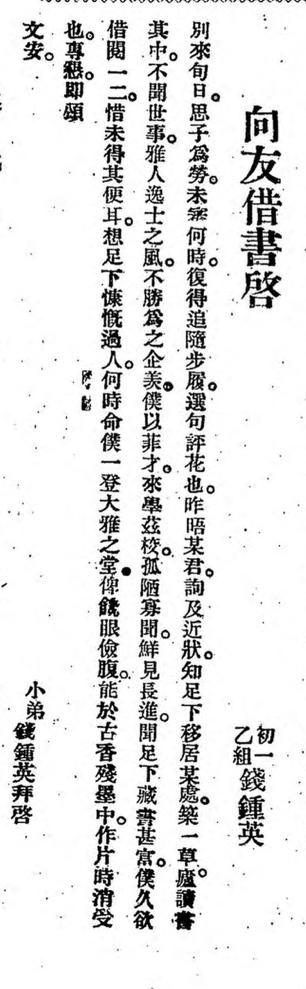 向友借書啓
初一乙組 錢鍾英
別來旬日。思子爲勞。未審何時。復得追隨步履。選句評花也。昨晤某君。詢及近狀。知足下移居某處。築一草廬。讀書
其中。不聞世事。雅人逸士之風。不勝爲之企羨。僕以菲才。來學茲校。孤陋寡聞。鮮見長進。聞足下藏書甚富。僕久欲
借閱一二。惜未得其便耳。想足下慷慨過人。何時命僕一登大雅之堂。俾饞眼儉腹。能於古香殘墨中。作片時消受
也。專懇。即頌
文安。
小弟
錢鍾英拜啓